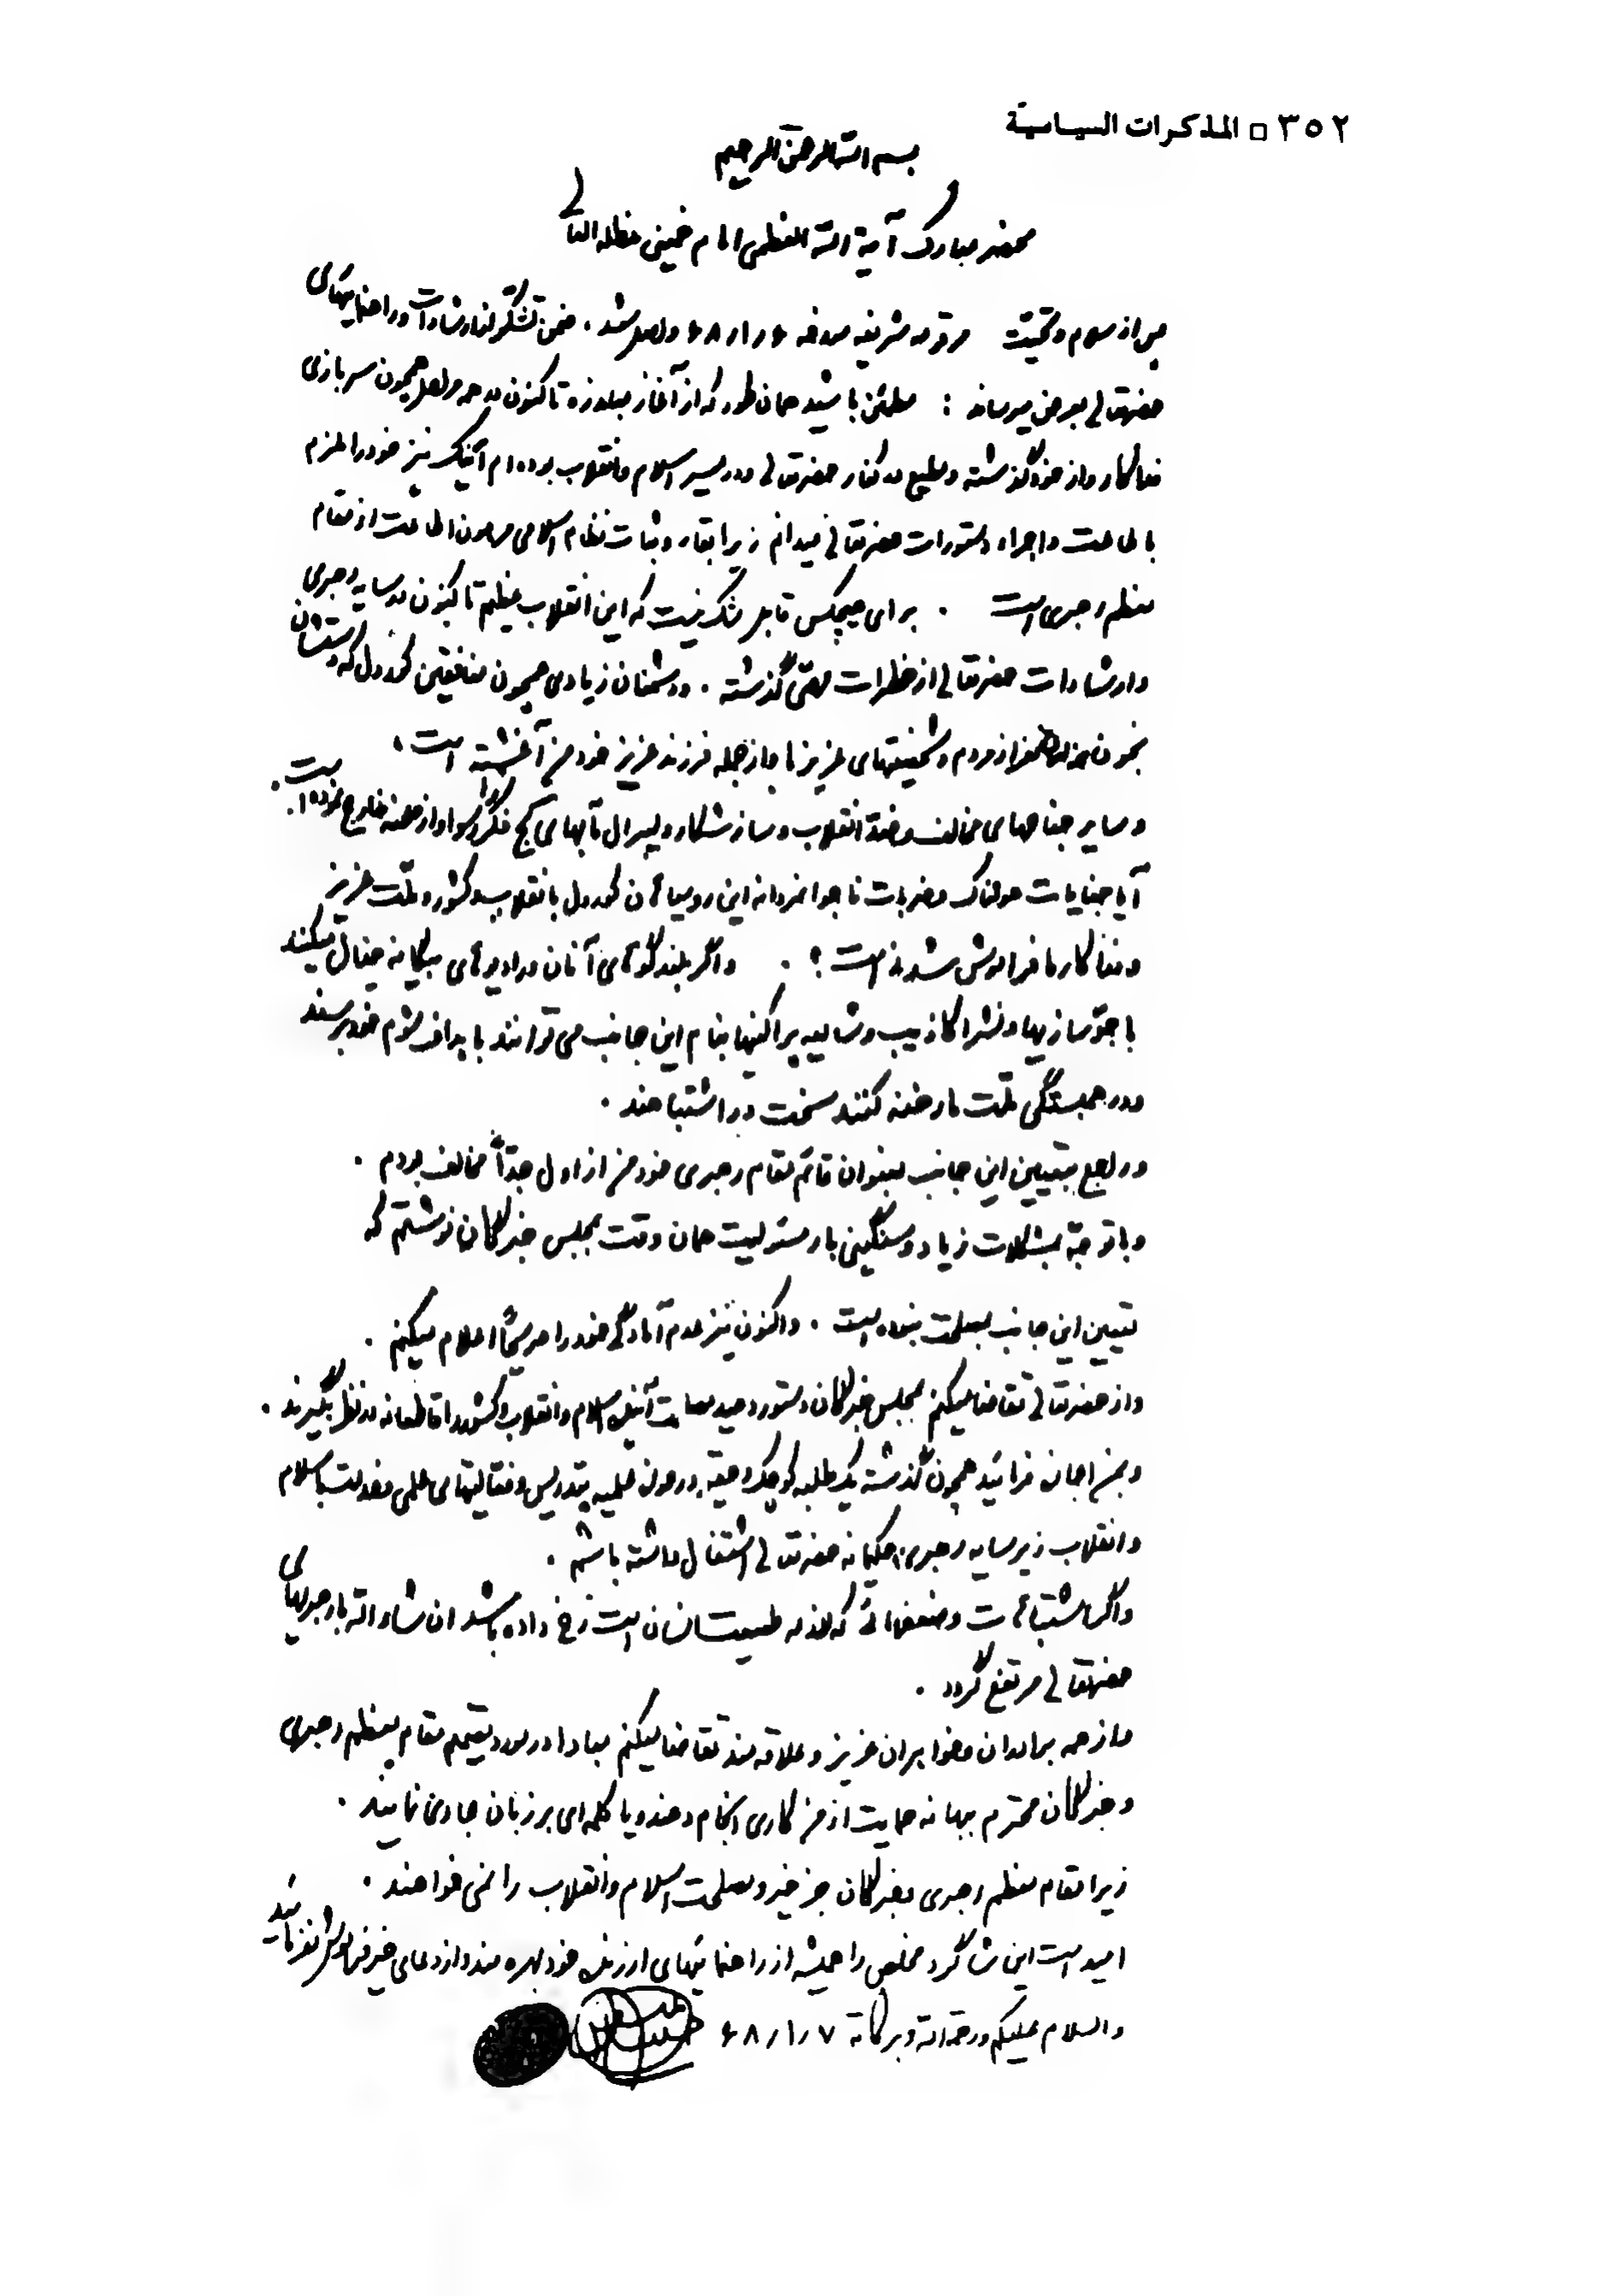 ٣٥٢ □ المذكرات السياسية
بسم الله الرحمن الرحیم
محضر مبارک آیة الله العظمی امام خمینی مدظله العالی
پس از سلام و تحیّت مرقومه شریفه مورخه ۶۸/۱/۶ واصل شد. ضمن تشکّر از ارشادات و راهنمائیهای
حضرتعالی بعرض میرساند : مطمئن باشید همان طور که از آغاز مبارزه تاکنون در همه مراحل همچون سربازی
فداکار و از خودگذشته و مطیع در کنار حضرتعالی و در مسیر اسلام و انقلاب بوده‌ام اینک نیز خود را ملزم
باطاعت و اجراء دستورات حضرتعالی میدانم زیرا بقاء و ثبات نظام اسلامی مرهون اطاعت از مقام
معظم رهبری است . برای هیچکس قابل شک نیست که این انقلاب عظیم تاکنون در سایه رهبری
و ارشادات حضرتعالی از خطرات مهمّی گذشته . و دشمنان زیادی همچون منافقین کوردل که دستشان
بخون هزاران نفر از مردم و شخصیتهای عزیز ما و از جمله فرزند عزیز خود من آغشته است ،
و سایر جناحهای مخالف و ضدّ انقلاب و سازشکار و لیبرال مآبهای کج فکر را رسوا و از صحنه خارج نموده است .
آیا جنایات هولناک و ضربات ناجوانمردانه این روسیاهان کوردل بانقلاب و کشور و ملّت عزیز
و فداکار ما فراموش شدنی است ؟ . و اگر بلندگوهای آنان و رادیوهای بیگانه خیال میکنند
با جوّسازیها و نشر اکاذیب و شایعه پراکنیها بنام این جانب می توانند باهداف شوم خود برسند
و در همبستگی ملّت ما رخنه کنند سخت در اشتباهند .
و راجع بتعیین این جانب بعنوان قائم مقام رهبری خود من از اول جدّاً مخالف بودم .
و با توجّه بمشکلات زیاد و سنگینی بار مسئولیت همان وقت بمجلس خبرگان نوشتم که
تعیین این جانب بمصلحت نبوده است . و اکنون نیز عدم آمادگی خود را صریحاً اعلام میکنم .
و از حضرتعالی تقاضا میکنم بمجلس خبرگان دستور دهید مصلحت آینده اسلام و انقلاب و کشور را قاطعانه در نظر بگیرند .
و بمن اجازه فرمائید همچون گذشته یک طلبه کوچک و حقیر در حوزه علمیه بتدریس و فعالیتهای علمی و خدمت باسلام
و انقلاب زیر سایه رهبری حکیمانه حضرتعالی اشتغال داشته باشم .
و اگر اشتباهات و ضعفهائی که لازمه طبیعت انسان است رخ داده باشد ان شاء الله با رهبریهای
حضرتعالی مرتفع گردد .
و از همه برادران و خواهران عزیز و علاقه مند تقاضا میکنم مبادا در مورد تصمیم مقام معظم رهبری
و خبرگان محترم ببهانه حمایت از من کاری انجام دهند و یا کلمه‌ای بر زبان جاری نمایند .
زیرا مقام معظم رهبری و خبرگان جز خیر و مصلحت اسلام و انقلاب را نمی خواهند .
امید است این شاگرد مخلص را همیشه از راهنمائیهای ارزنده خود بهره مند و از دعای خیر فراموش نفرمائید
والسلام علیکم و رحمة الله و برکاته ۶۸/۱/۷